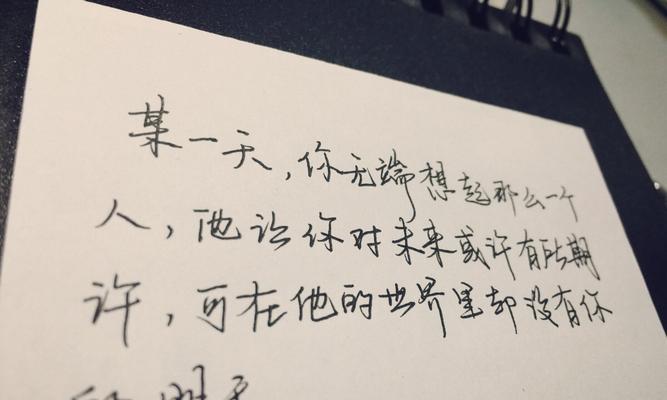 某一天，你无端想起那么一个
人，他让你对未来或许有所期
许，可在他的世界里却没有你
明天